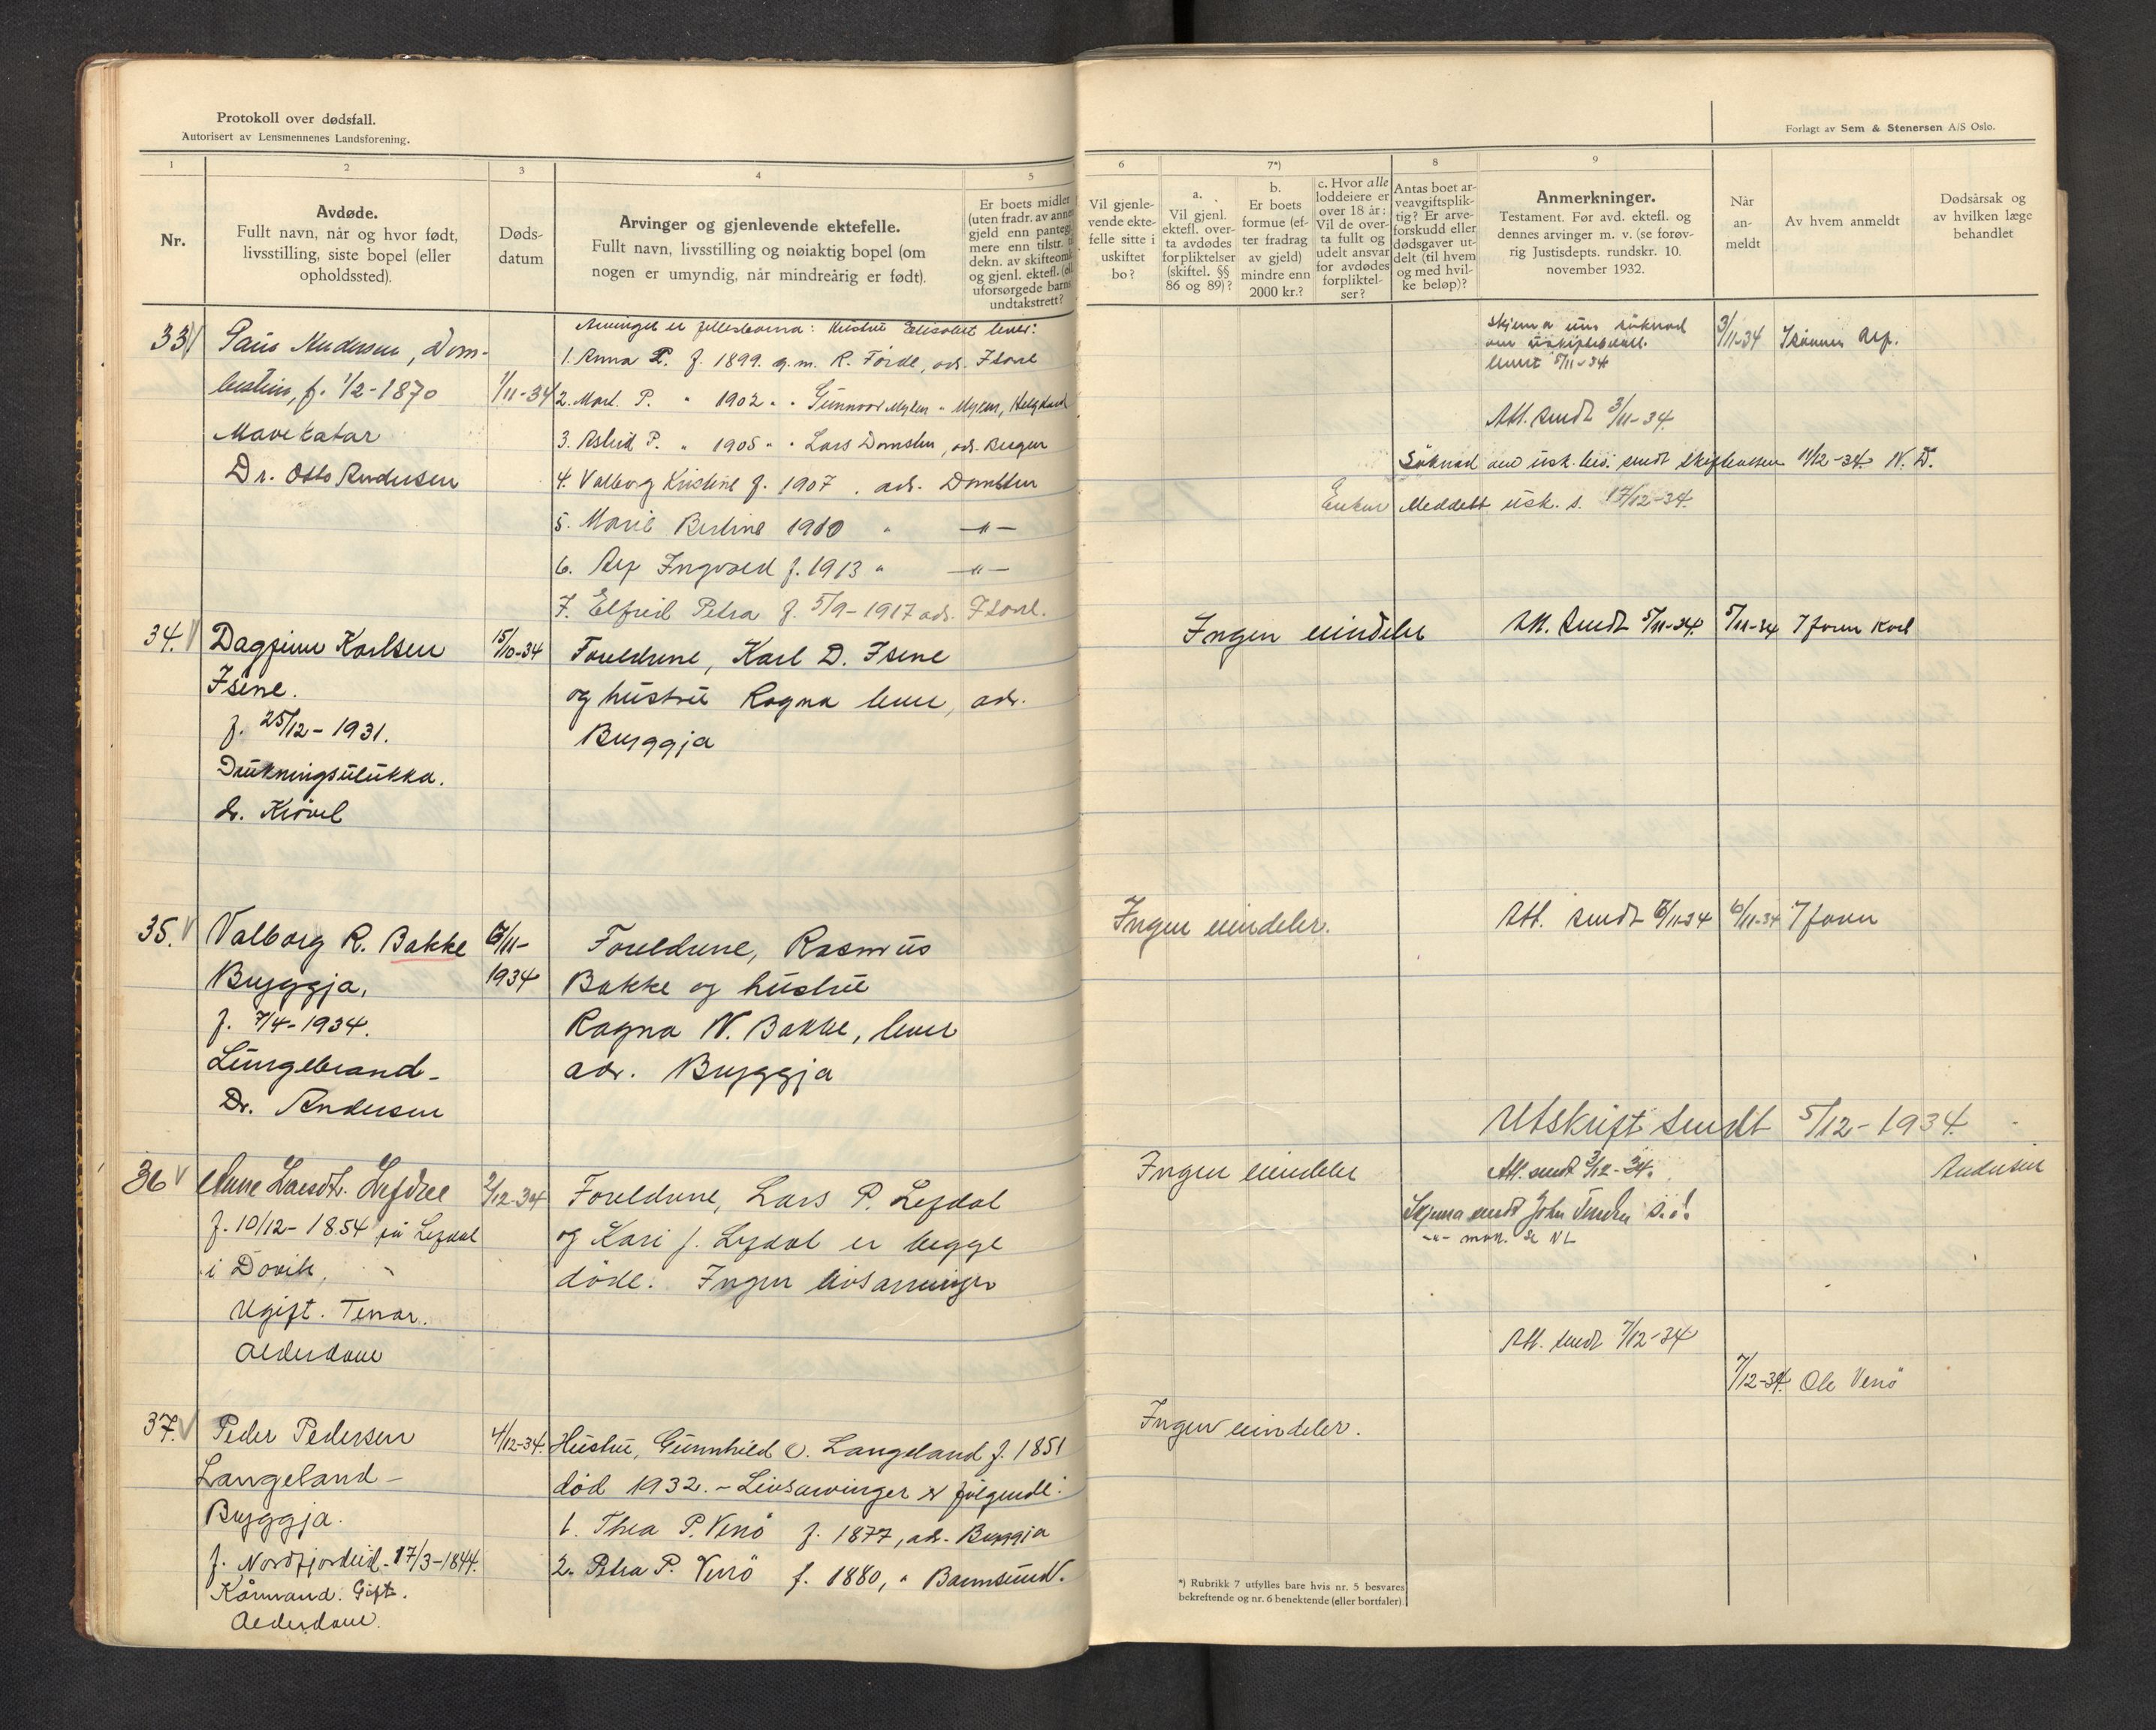 Protokoll over dødsfall.
Autorisert av Lensmennenes Landsforening.
Forlagt av Sem & Stenersen A/S Oslo.
1
2
3
4
5
6
7*)
8
9
Nr.
Avdøde.
Fullt navn, når og hvor født,
livsstilling, siste bopel (eller
opholdssted).
Døds-
datum
Arvinger og gjenlevende ektefelle.
Fullt navn, livsstilling og nøiaktig bopel (om
nogen er umyndig, når mindreårig er født).
Er boets midler
(uten fradr. av annen
gjeld enn pantegj.
mere enn tilstr. til
dekn. av skifteomk.
og gjenl. ektefl. (ell.
uforsørgede barns
undtakstrett?
Vil gjenle-
vende ekte-
felle sitte i
uskiftet
bo?
a.
Vil gjenl.
ektefl. over-
ta avdødes
forpliktelser
(skiftel. §§
86 og 89)?
b.
Er boets
formue (ef-
ter fradrag
av gjeld)
mindre enn
2000 kr.?
c. Hvor alle
loddeiere er
over 18 år:
Vil de over-
ta fullt og
udelt ansvar
for avdødes
forpliktel-
ser?
Antas boet ar-
veavgiftsplik-
tig? Er arve-
forskudd eller
dødsgaver ut-
delt (til hvem
og med hvil-
ke beløp)?
Anmerkninger.
Testament. Før avd. ektefl. og
dennes arvinger m. v. (se forøv-
rig Justisdepts. rundskr. 10.
november 1932.
Når
an-
meldt
Av hvem anmeldt
Dødsårsak og
av hvilken læge
behandlet
33
Paus Andersen, Dom-
bestein, f. 1/2-1870
Mavekatar
Dr. Otto Andersen
1/11-34
Arvinger er fellesbarna: Hustru Elisabet lever:
1. Anna P. f. 1899. g.m. R. Förde, adr. Isane
2. Mart. P. " 1902 " " Gunnvor Myken " Myken, Helgeland
3. Astrid P. " 1905 " " Lars Domsten, adr. Bergen
4. Valborg Kristine f. 1907 . adr. Domsten
5. Marie Bertine 1910 " —"—
6. Alf Ingvald f. 1913 " —"—
7. Elfrid Petra f. 5/9-1917 adr. Isane.
Skjema um söknad
om uskiftebevill.
levert 5/11-34
3/11-34
Isönnen Alf.
Att. sendt 3/11-34
Söknad om usk. bev. sendt skifteretten 11/12-34. N. D.
Enken Meddelt usk. s. 17/12-34.
34.
Dagfinn Karlsen
Isene.
f. 25/12-1931.
Drukningsulukka.
dr. Kiövel
15/10-34
Foreldrene, Karl D. Isene
og hustru Ragna lever, adr.
Bryggja
Ingen eiendeler
Att. sendt 5/11-34.
5/11-34
Faren Karl
35.
Valborg R. Bakke
Bryggja,
f. 7/4-1934.
Lungebrand-
Dr. Andersen
6/11-
1934
Foreldrene, Rasmus
Bakke og hustru
Ragna N. Bakke, lever
adr. Bryggja
Ingen eiendeler.
Att. sendt 6/11-34
6/11-34
Faren
Utskrift sendt 5/12-1934.
36
Anne Larsdt. Lefdal
f. 10/12-1854 på Lefdal
i Davik,
Ugift. Tenar.
Alderdom
2/12-34
Foreldrene, Lars P. Lefdal
og Kari J. Lefdal er begge
döde. Ingen livsarvinger
Ingen eiendeler
Att. sendt 3/12-34.
Andersen
Skjema sendt John
Att. sendt 7/12-34
7/12-34.
Ole Venö
37.
Peder Pedersen
Langeland -
Bryggja.
f. Nordfjordeid. 17/3-1844.
Kårmand. Gift.
Alderdom.
4/12-34.
Hustru, Gunnhild O. Langeland f. 1851
död 1932. - Livsarvinger er fölgende:
1. Thea P. Venö f. 1877, adr. Bryggja
2. Petra P. Venö f. 1880, "
Ingen eiendeler.
*) Rubrikk 7 utfylles bare hvis nr. 5 besvares
bekreftende og nr. 6 benektende (eller bortfaler).